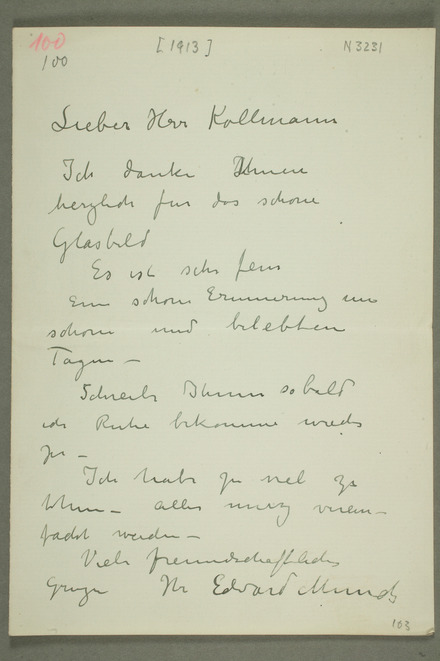 100
[1913]
N 3231
100
Lieber Herr Kollmann
Ich danke Ihnen
herzlich fur das schone
Glasbild
Es ist sehr fein
Eine schone Erinnerung an
schone und belebten
Tagen –
Schreibe Ihnen sobald
ich Ruhe bekomme wieder
Ich habe zu viel zu
thun – alles muss verein–
facht werden –
Viele freundschaftliche
Grüsse Ihr Edvard Munch
103